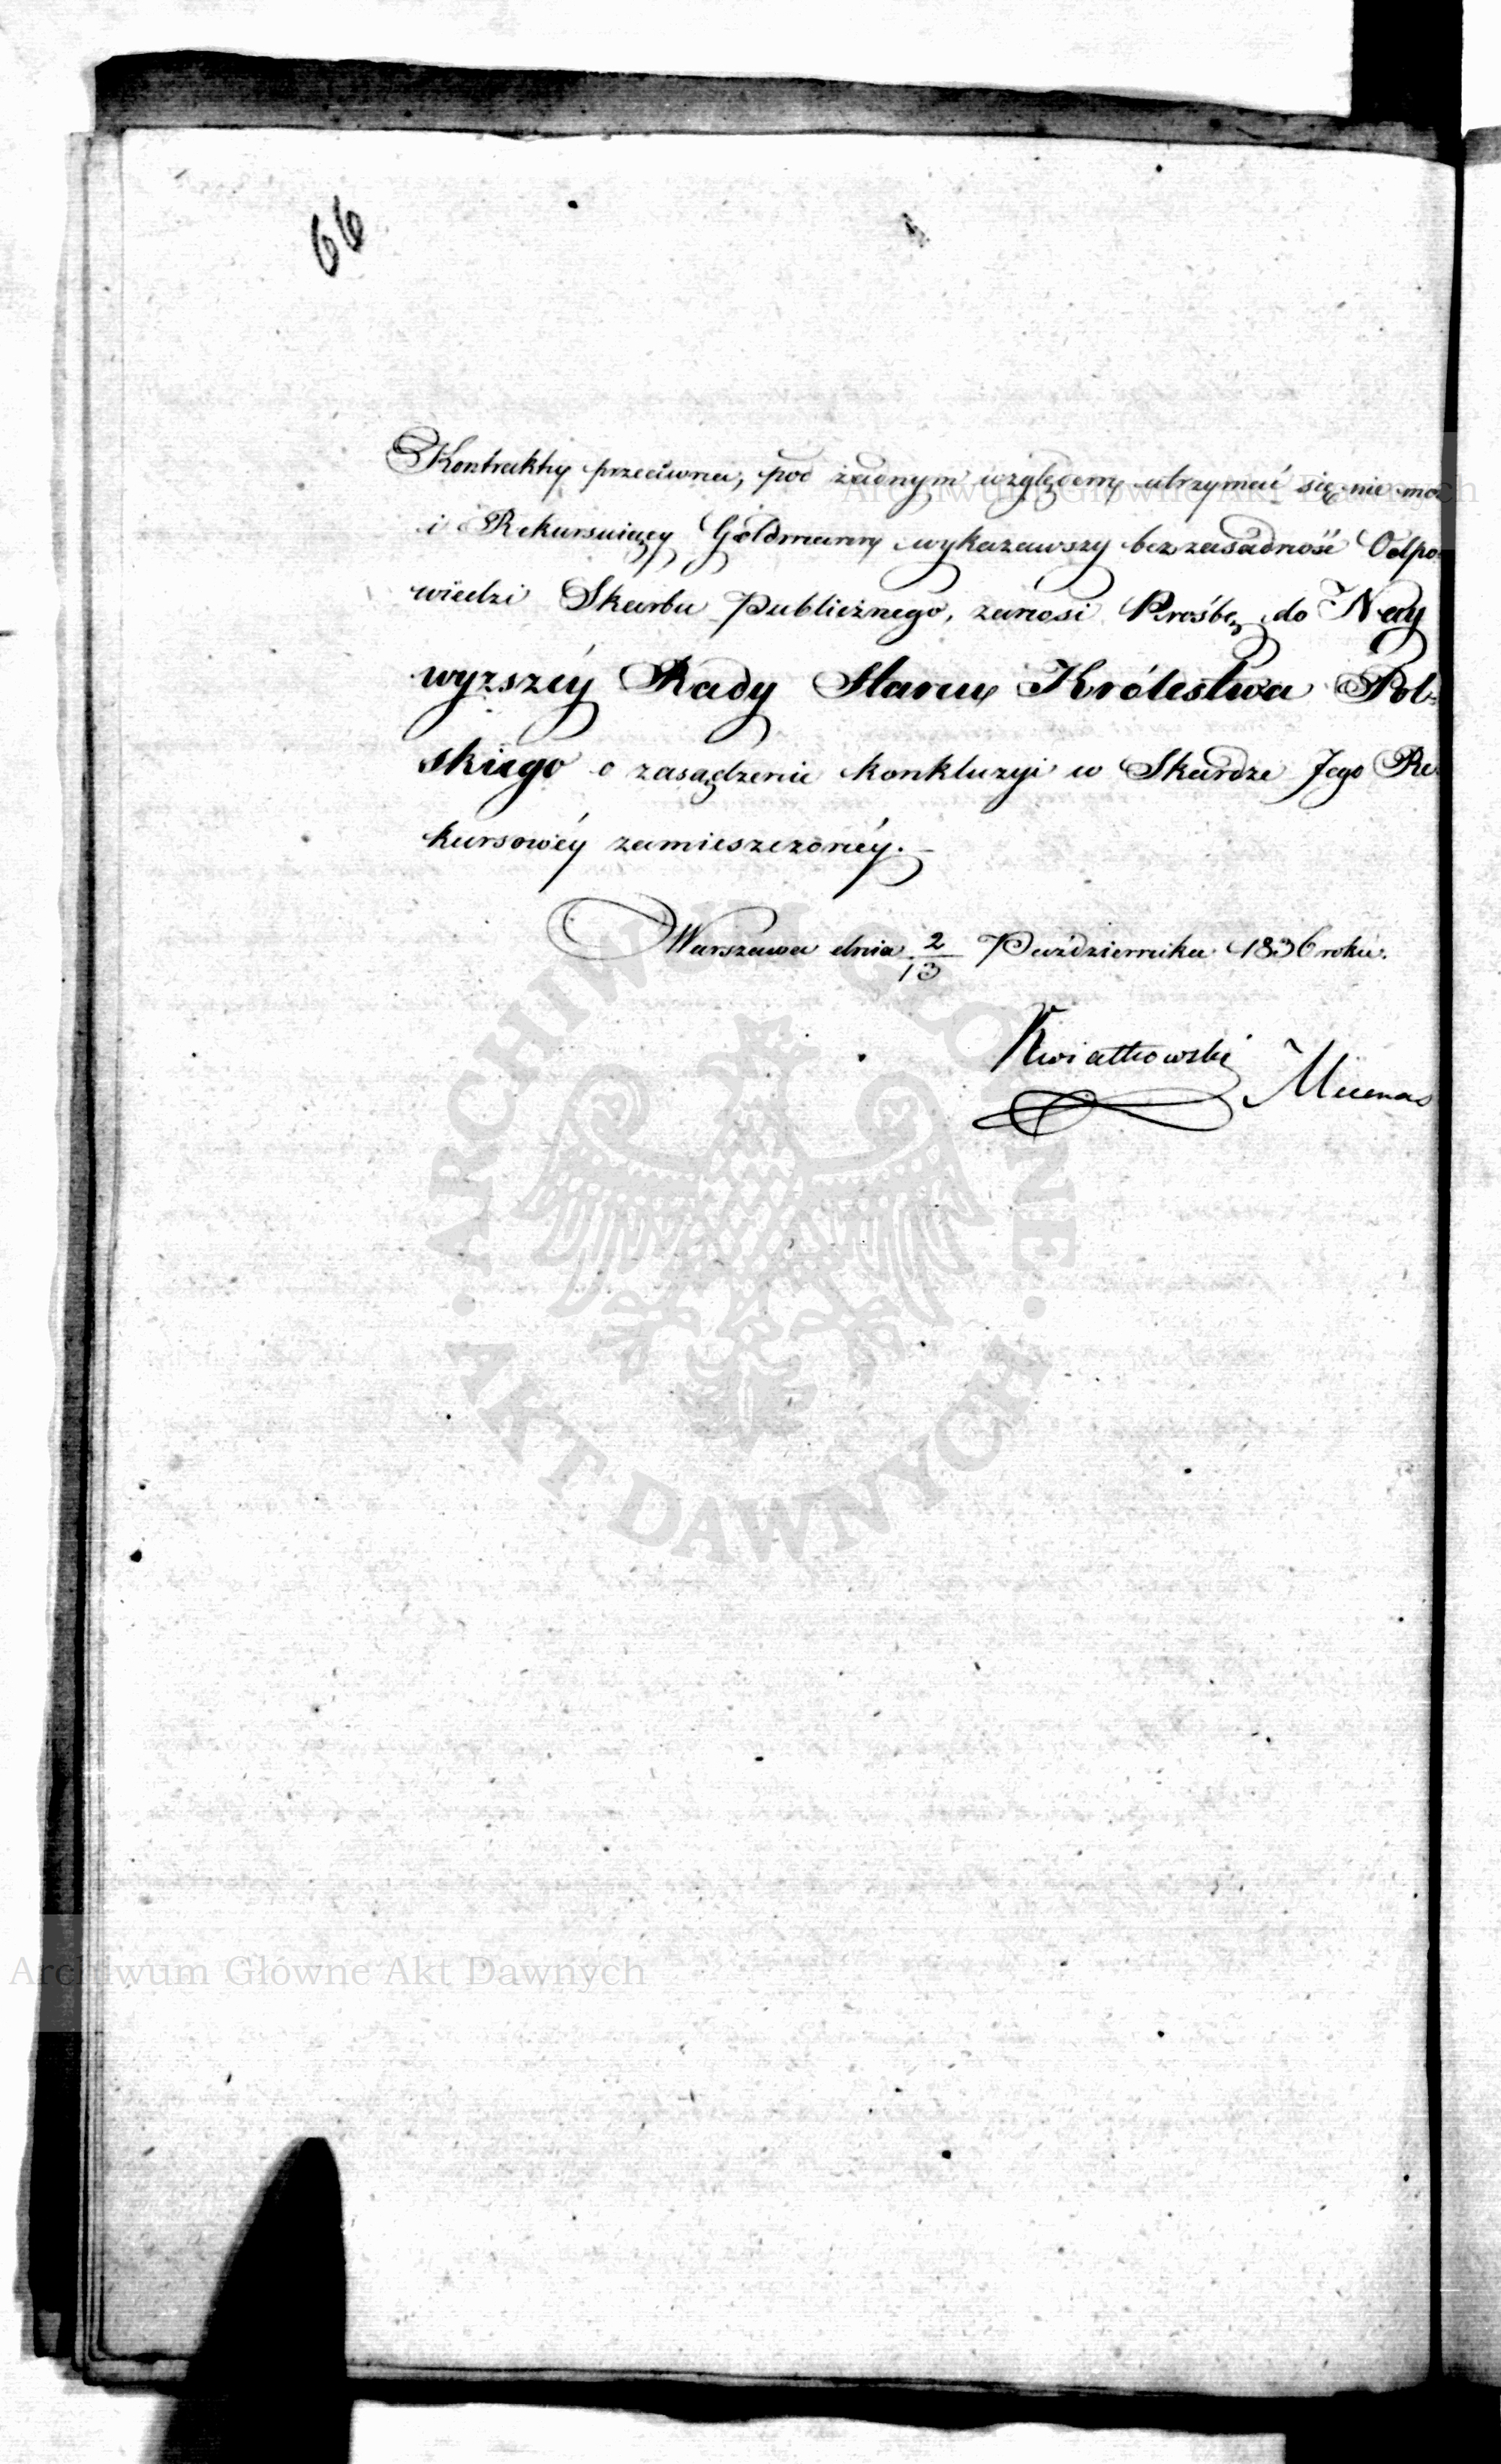 66
Kontrakty przeciwna, pod żadnym względem utrzymać się nie mo
i Rekursuiący Goldmann wykazawszy bezzasadność Odpo-
wiedzi Skarbu Publicznego, zanosi Prośbę do Nay
wyższéy Rady Stanu Królestwa Pol-
skiego o zasądzenie konkluzyi w Skardze Jego Re-
kursowéy zamieszczonéy.-
Warszawa dnia 2/13 Października 1836 roku.
Kwiatkowski Mecenas
Archiwum Główne Akt Dawnych
ARCHIWUM GŁÓWNE · AKT DAWNYCH ·
Archiwum Główne Akt Dawnych